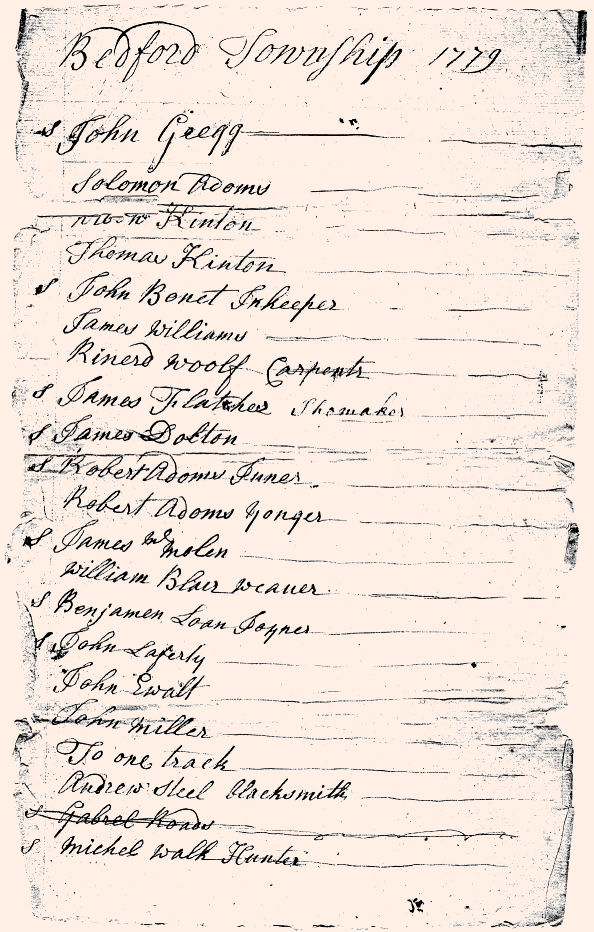 Bedford Township 1779
s John Gregg
Solomon Adoms
Kinton
Thomas Kinton
s John Bonet Inkeeper
James Williams
Rinerd Woolf Carpentr
s James Flatcher Shomaker
s James Dolton
s Robert Adoms Juner
Robert Adoms yonger
s James Mc molen
William Blair weauer
s Benjamen Loan Joyner
s John Laferty
John Ewalt
John miller
To one track
Andrew Steel blacksmith
s Gabrel Roads
s michel walk Hunter